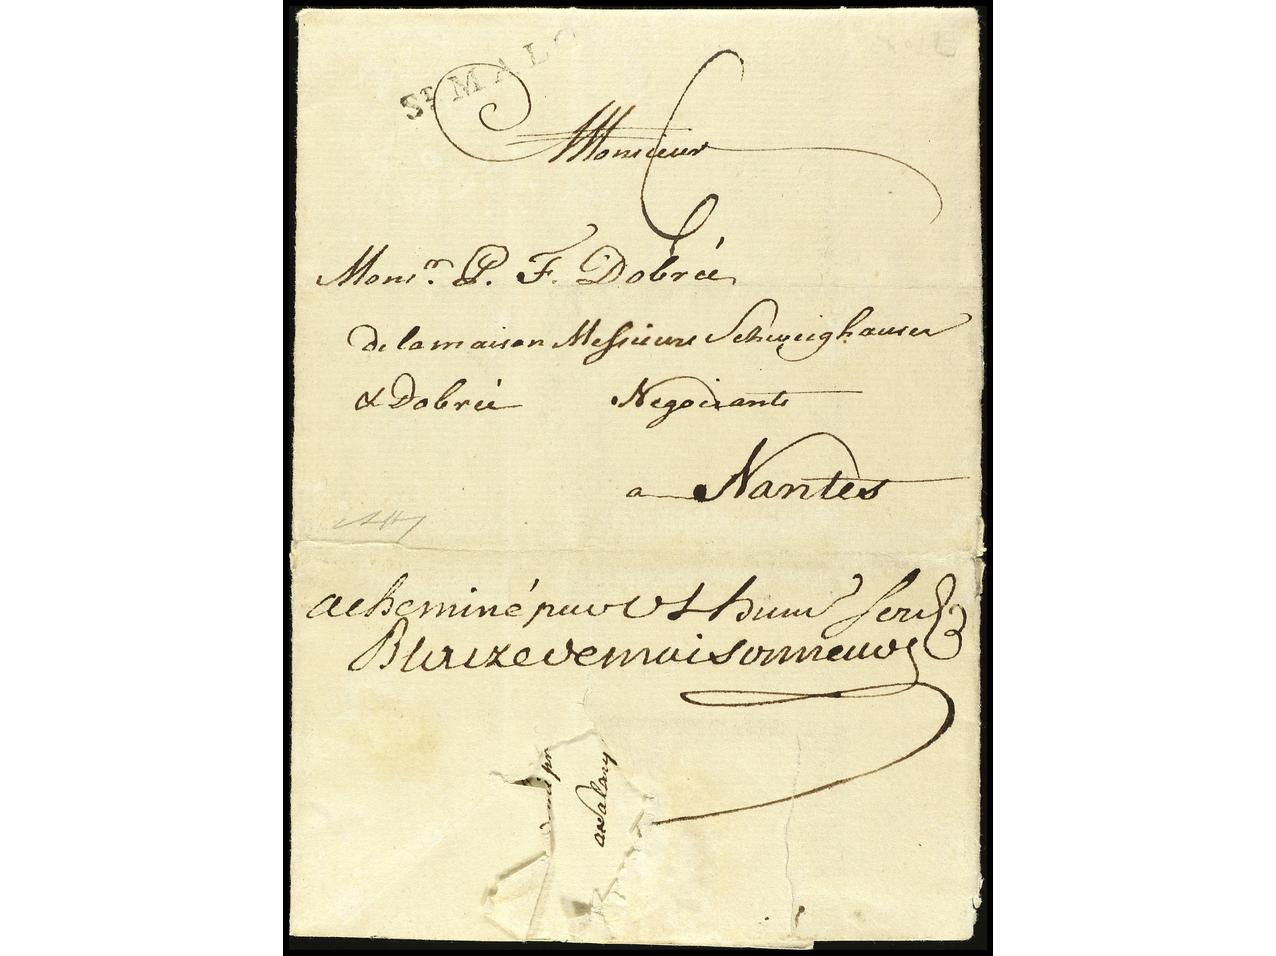 St MALO
Monsieur
Monsr. P. F. Dobrée
de la maison Messieurs Schweighauser
& Dobrée Negociants
a Nantes
acheminé par Vt humr Serv
Blaize de maisonneuve